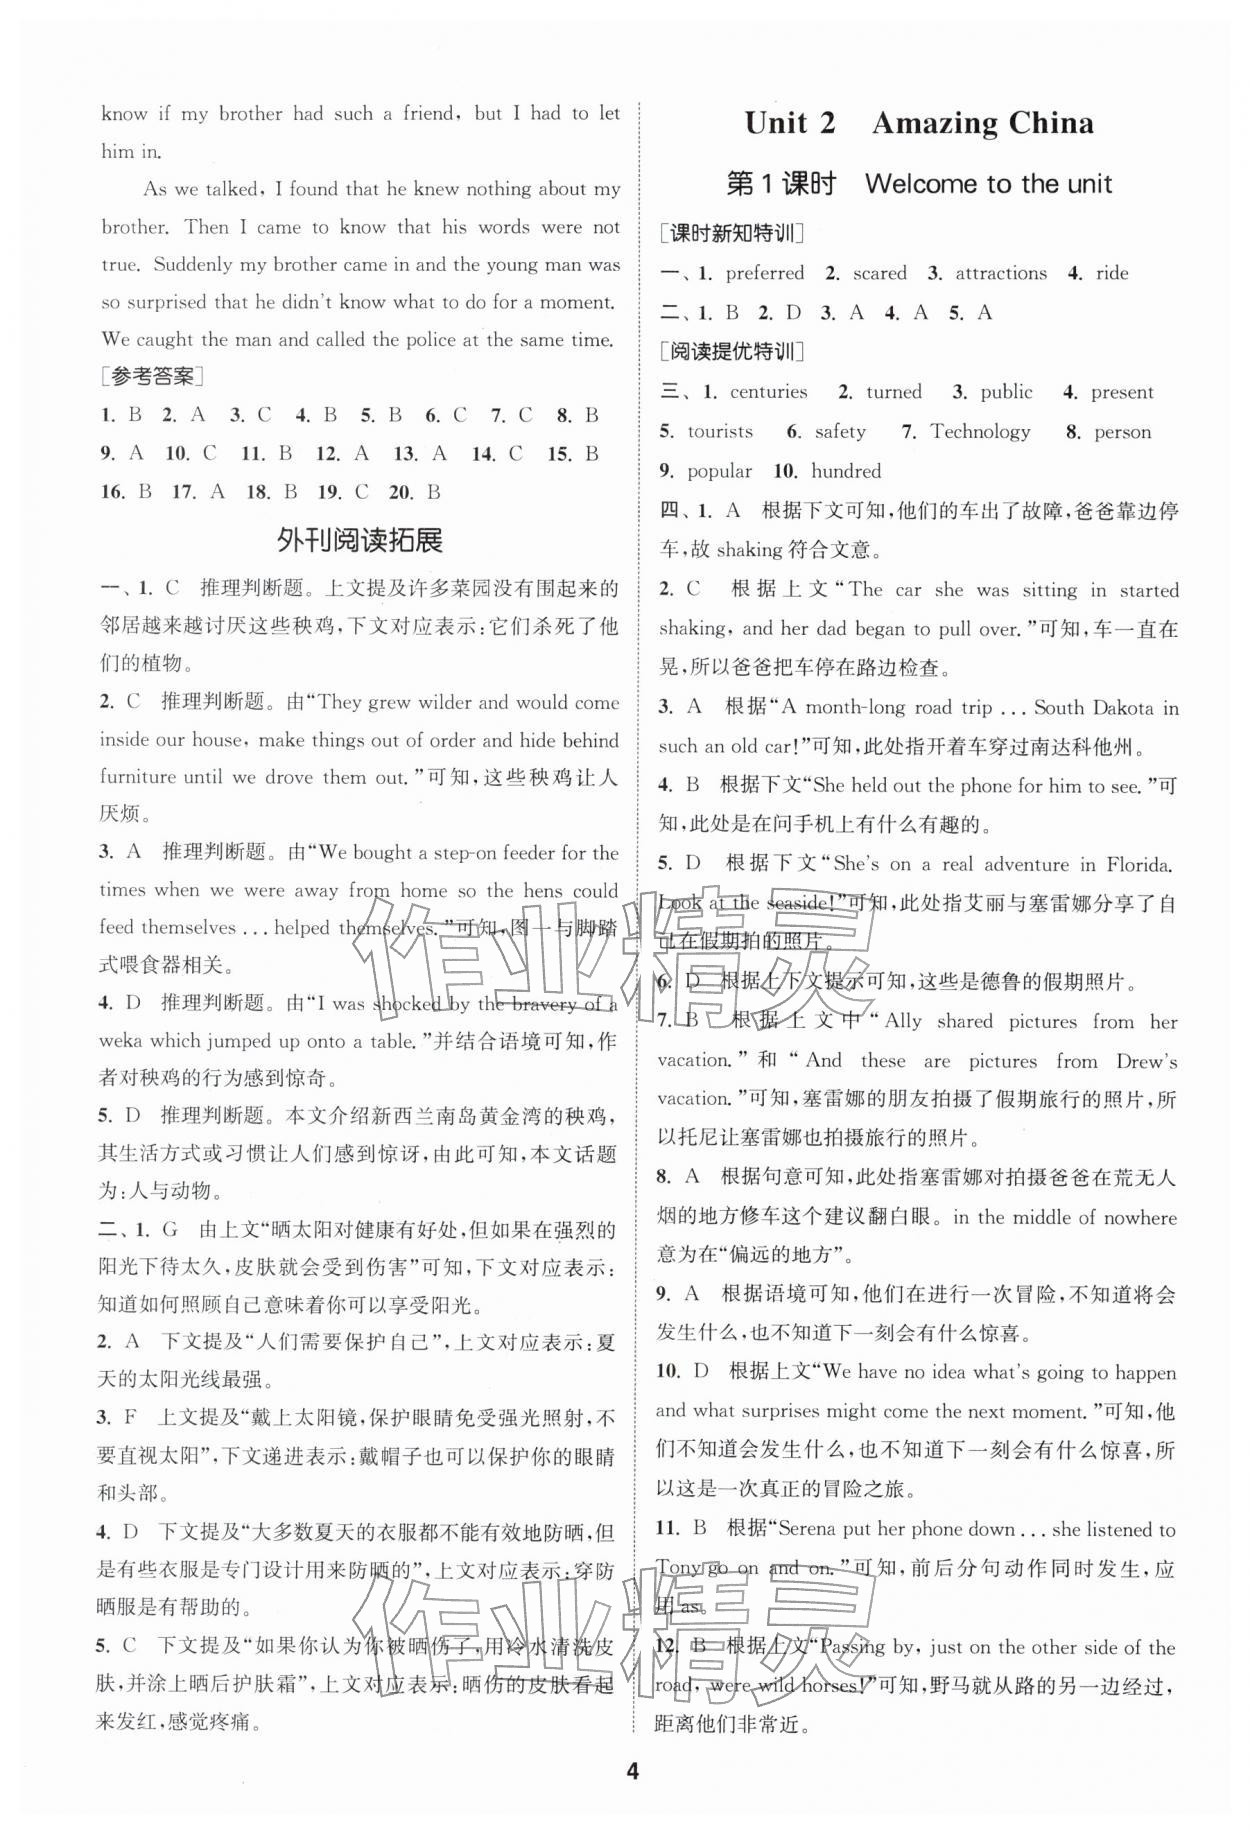 know if my brother had such a friend, but I had to let
him in.
As we talked, I found that he knew nothing about my
brother. Then I came to know that his words were not
true. Suddenly my brother came in and the young man was
so surprised that he didn't know what to do for a moment.
We caught the man and called the police at the same time.
[参考答案]
1. B 2. A 3. C 4. B 5. B 6. C 7. C 8. B
9. A 10. C 11. B 12. A 13. A 14. C 15. B
16. B 17. A 18. B 19. C 20. B
外刊阅读拓展
一、1. C 推理判断题。上文提及许多菜园没有围起来的
邻居越来越讨厌这些秧鸡,下文对应表示:它们杀死了他
们的植物。
2. C 推理判断题。由“They grew wilder and would come
inside our house, make things out of order and hide behind
furniture until we drove them out.”可知,这些秧鸡让人
厌烦。
3. A 推理判断题。由“We bought a step-on feeder for the
times when we were away from home so the hens could
feed themselves ... helped themselves.”可知,图一与脚踏
式喂食器相关。
4. D 推理判断题。由“I was shocked by the bravery of a
weka which jumped up onto a table.”并结合语境可知,作
者对秧鸡的行为感到惊奇。
5. D 推理判断题。本文介绍新西兰南岛黄金湾的秧鸡,
其生活方式或习惯让人们感到惊讶,由此可知,本文话题
为:人与动物。
二、1. G 由上文“晒太阳对健康有好处,但如果在强烈的
阳光下待太久,皮肤就会受到伤害”可知,下文对应表示:
知道如何照顾自己意味着你可以享受阳光。
2. A 下文提及“人们需要保护自己”,上文对应表示:夏
天的太阳光线最强。
3. F 上文提及“戴上太阳镜,保护眼睛免受强光照射,不
要直视太阳”,下文递进表示:戴帽子也可以保护你的眼睛
和头部。
4. D 下文提及“大多数夏天的衣服都不能有效地防晒,但
是有些衣服是专门设计用来防晒的”,上文对应表示:穿防
晒服是有帮助的。
5. C 下文提及“如果你认为你被晒伤了,用冷水清洗皮
肤,并涂上晒后护肤霜”,上文对应表示:晒伤的皮肤看起
来发红,感觉疼痛。
Unit 2 Amazing China
第1课时 Welcome to the unit
[课时新知特训]
一、1. preferred 2. scared 3. attractions 4. ride
二、1. B 2. D 3. A 4. A 5. A
[阅读提优特训]
三、1. centuries 2. turned 3. public 4. present
5. tourists 6. safety 7. Technology 8. person
9. popular 10. hundred
四、1. A 根据下文可知,他们的车出了故障,爸爸靠边停
车,故 shaking 符合文意。
2. C 根据上文“The car she was sitting in started
shaking, and her dad began to pull over.”可知,车一直在
晃,所以爸爸把车停在路边检查。
3. A 根据“A month-long road trip ... South Dakota in
such an old car!”可知,此处指开着车穿过南达科他州。
4. B 根据下文“She held out the phone for him to see.”可
知,此处是在问手机上有什么有趣的。
5. D 根据下文“She's on a real adventure in Florida.
Look at the seaside!”可知,此处指艾丽与塞雷娜分享了自
己在假期拍的照片。
6. D 根据上下文提示可知,这些是德鲁的假期照片。
7. B 根据上文中“Ally shared pictures from her
vacation.”和“And these are pictures from Drew's
vacation.”可知,塞雷娜的朋友拍摄了假期旅行的照片,所
以托尼让塞雷娜也拍摄旅行的照片。
8. A 根据句意可知,此处指塞雷娜对拍摄爸爸在荒无人
烟的地方修车这个建议翻白眼。in the middle of nowhere
意为在“偏远的地方”。
9. A 根据语境可知,他们在进行一次冒险,不知道将会
发生什么,也不知道下一刻会有什么惊喜。
10. D 根据上文“We have no idea what's going to happen
and what surprises might come the next moment.”可知,他
们不知道会发生什么,也不知道下一刻会有什么惊喜,所
以这是一次真正的冒险之旅。
11. B 根据“Serena put her phone down ... she listened to
Tony go on and on.”可知,前后分句动作同时发生,应
用 as。
12. B 根据上文“Passing by, just on the other side of the
road, were wild horses!”可知,野马就从路的另一边经过,
距离他们非常近。
4
作业精灵
作业精灵